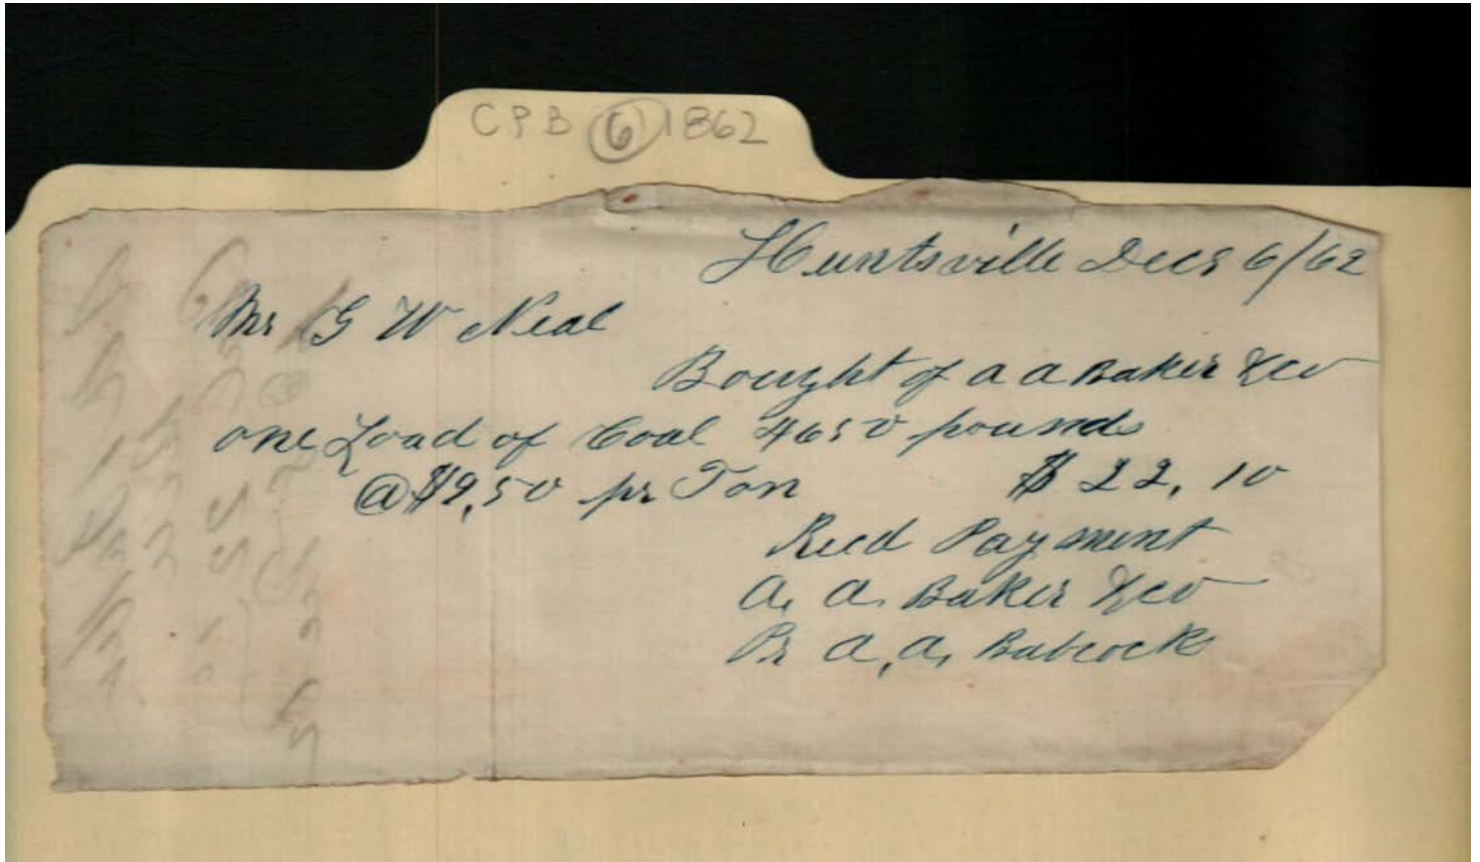 CPB 6 1862
Huntsville Decr 6/62
Mr G W Neal
Bought of A A Baker & Co
one Load of Coal 4650 pounds
@ $9,50 pr Ton $ 22,10
Recd Payment
A, A. Baker & Co
Pr A, A, Babcock